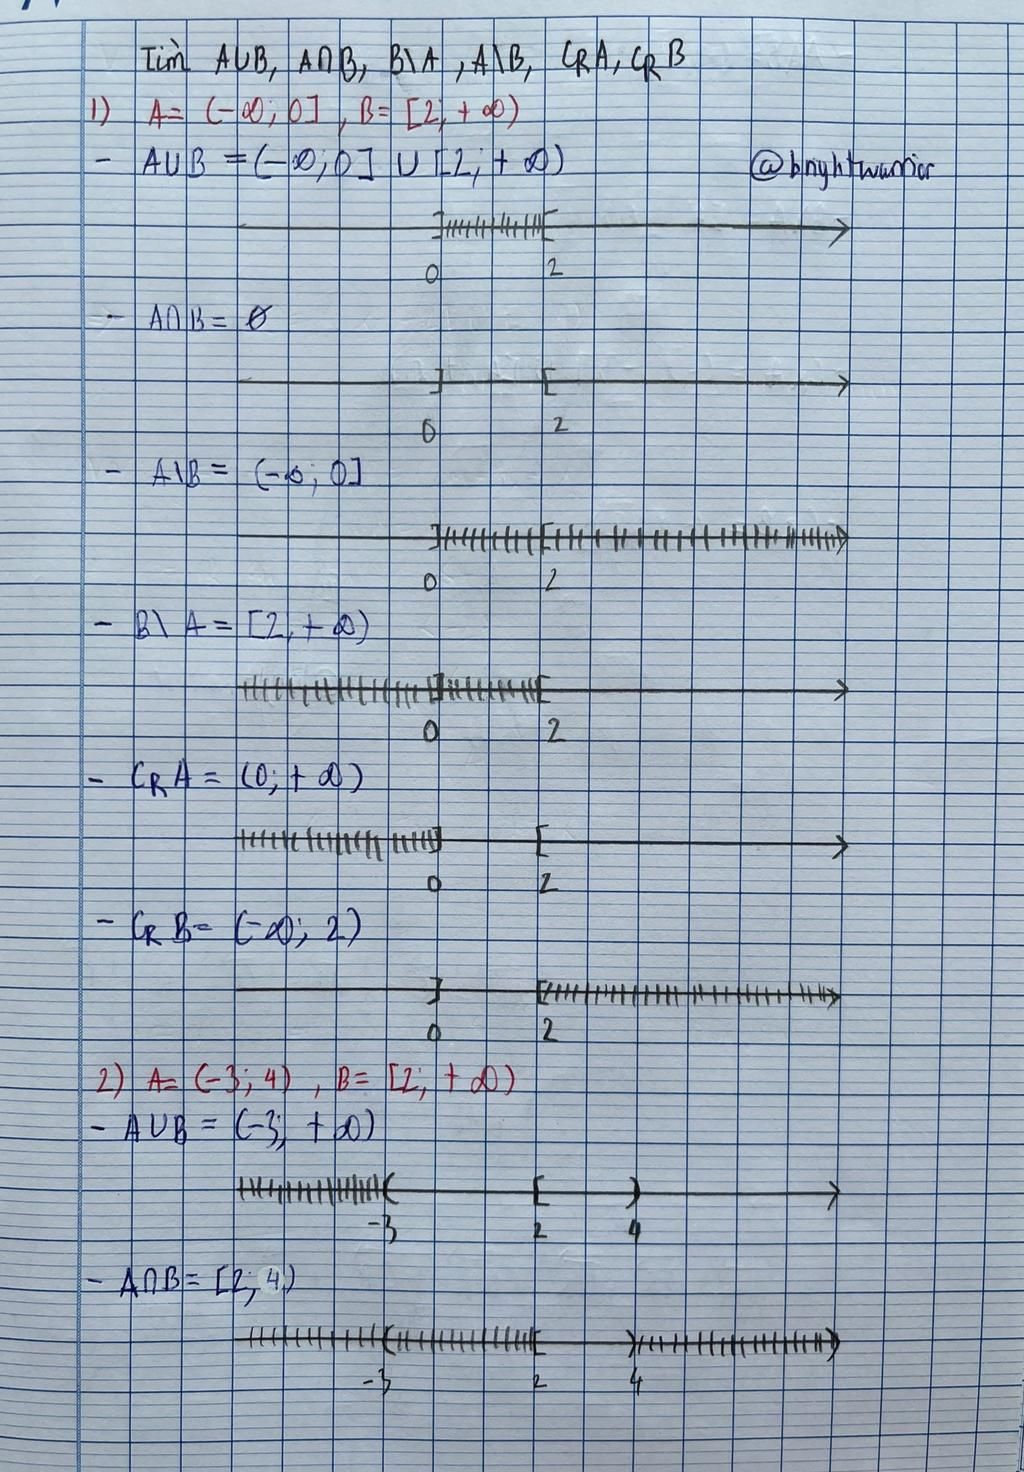 Tìm A∪B, A∩B, B\A, A\B, CRA, CRB
1) A= (-∞; 0], B= [2; +∞)
- A∪B = (-∞; 0] ∪ [2; +∞)
@brightwarrior
0 2
- A∩B = ∅
0 2
- A\B = (-∞; 0]
0 2
- B\A = [2; +∞)
0 2
- CRA = (0; +∞)
0 2
- CRB= (-∞; 2)
0 2
2) A= (-3; 4), B= [2; +∞)
- A∪B = (-3; +∞)
-3 2 4
- A∩B = [2; 4)
-3 2 4